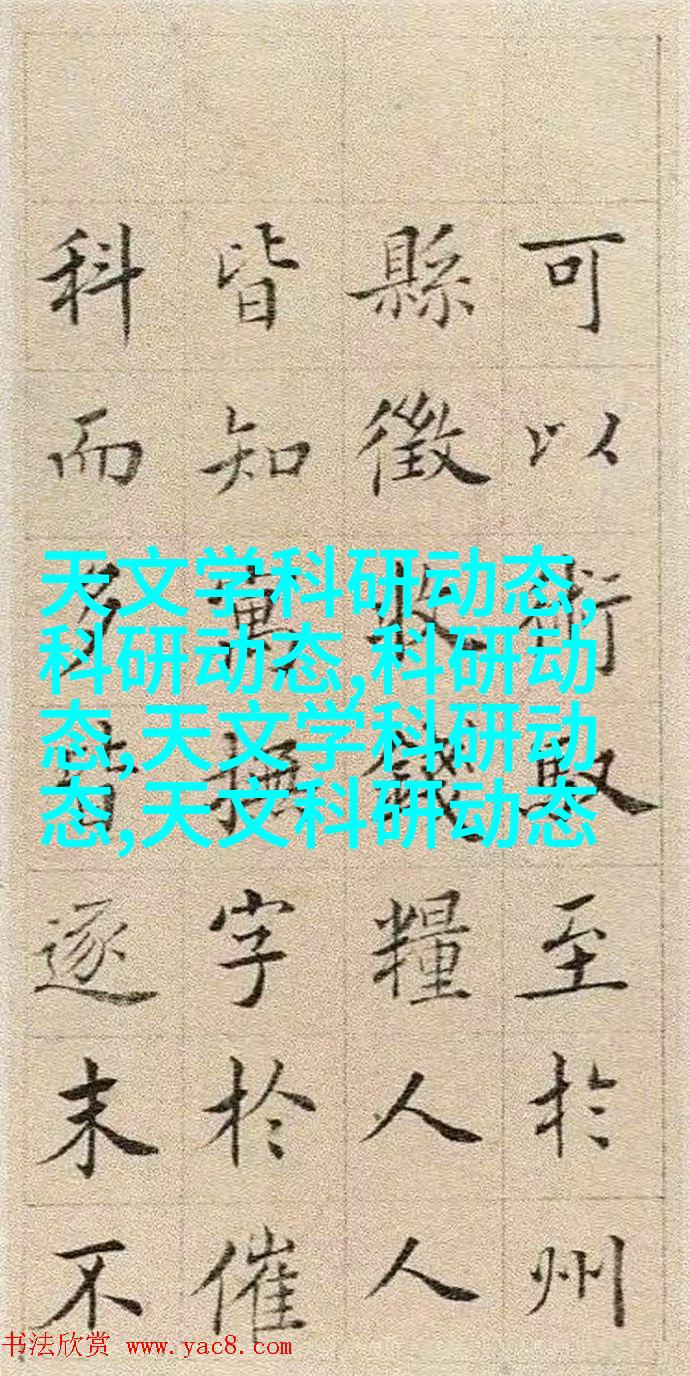 可以術取至於州
縣徵收錢糧人人
皆知寓撫字於催
科而多逐末不
天文学科研动态,
科研动态,科研动
态,天文学科研动
态,天文科研动态
书法欣赏 www.yac8.com